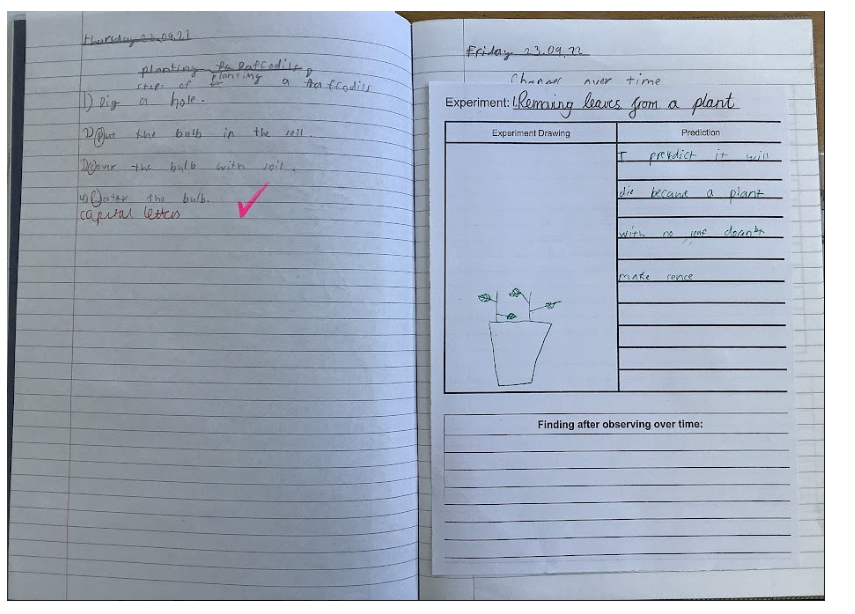 Thursday 22.09.22
planting Daffodils
steps of planting a Daffodils
1) Dig a hole.
2) Put the bulb in the soil.
3) Cover the bulb with soil.
4) Water the bulb.
capital letters
Friday 23.09.22
Change over time
Experiment: Removing leaves from a plant
Experiment Drawing
Prediction
I prevdict it will
die because a plant
with no doesn't
make sence
Finding after observing over time: